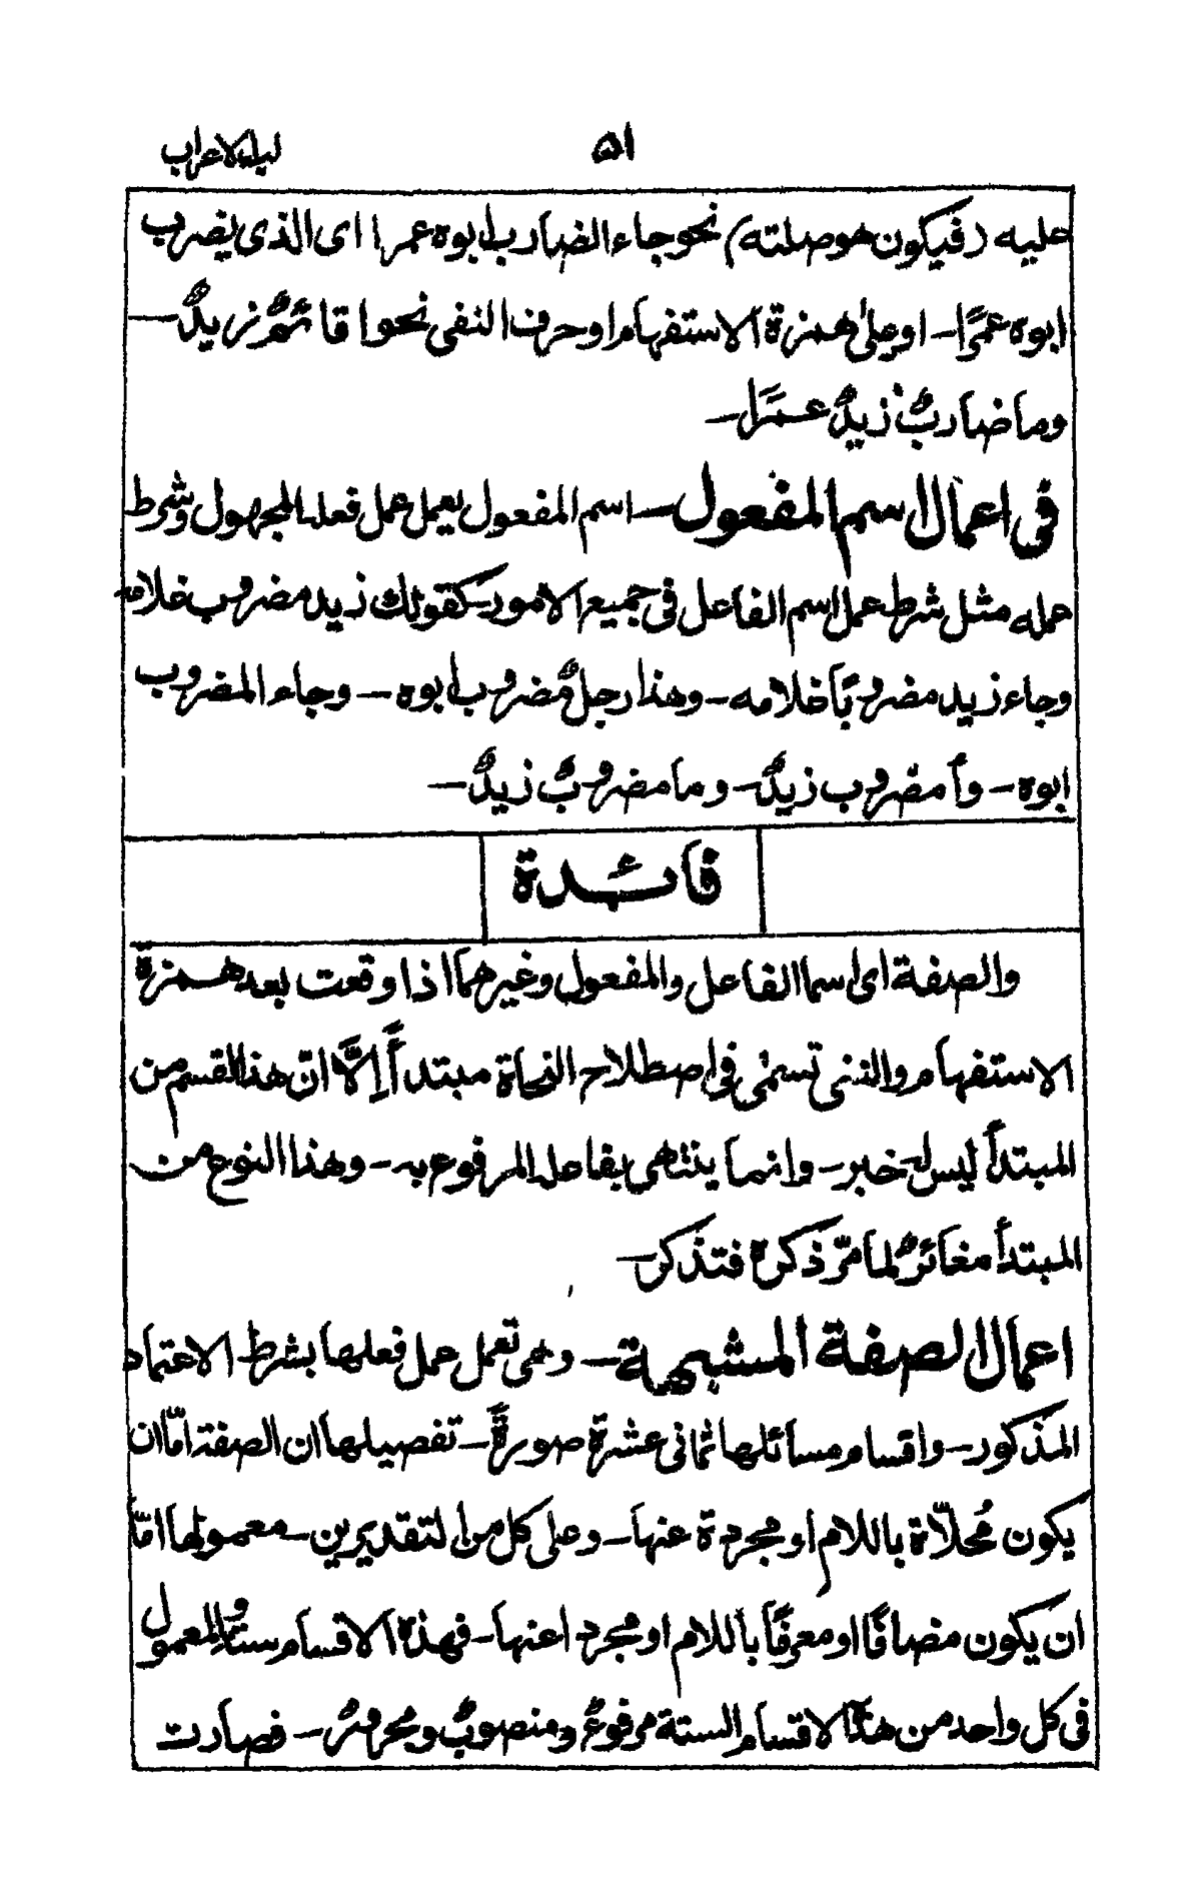 لب الاعراب
۵۱
عليه (فيكون هو صلته) نحو جاء الضارب ابوه عمرا اى الذى يضرب
ابوه عمرًا — او على همزة الاستفهام او حرف النفى نحو ا قائمٌ زيدٌ —
وما ضاربٌ زيدٌ عمرًا —
فى اعمال اسم المفعول — اسم المفعول يعمل عمل فعله المجهول وشرط
عمله مثل شرط عمل اسم الفاعل فى جميع الامور — كقولك زيد مضروب غلامه
وجاء زيد مضروبًا غلامه — وهذا رجلٌ مضروب ابوه — وجاء المضروب
ابوه — وأ مضروب زيدٌ — وما مضروبٌ زيدٌ —
فائدة
والصفة اى اسما الفاعل والمفعول وغيرهما اذا وقعت بعد همزة
الاستفهام والنفى تسمٰى فى اصطلاح النحاة مبتدأً إلاَّ انّ هذا القسم من
المبتدأ ليس له خبر — وانما ينتهى بفاعله المرفوع به — وهذا النوع من
المبتدأ مغائرٌ لما مرّ ذكره فتذكر —
اعمال الصفة المشبهة — وهى تعمل عمل فعلها بشرط الاعتماد
المذكور — واقسام مسائلها ثمانى عشرة صورةً — تفصيلها ان الصفة امّا ان
يكون مُحلاّة باللام او مجردة عنها — وعلى كل من التقديرين — معمولها امّا
ان يكون مضافًا او معرفًا باللام او مجردا عنها — فهذه الاقسام ستة والمعمول
فى كل واحد من هذه الاقسام الستة مرفوعٌ و منصوبٌ و مجرورٌ — فصارت